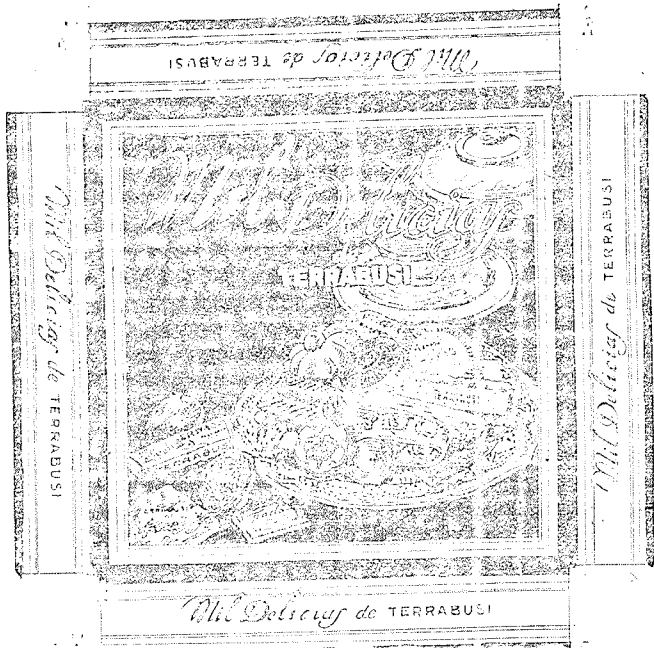 Mil Delicias de TERRABUSI
Mil Delicias
de
TERRABUSI
Mil Delicias de TERRABUSI
Mil Delicias de TERRABUSI
Mil Delicias de TERRABUSI